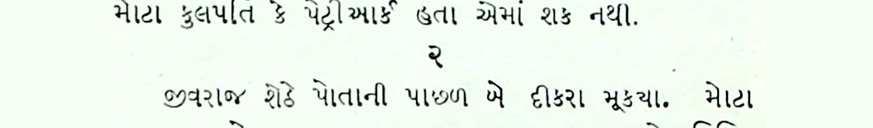 મોટા કુલપતિ કે પેટ્રીઆર્ક હતા એમાં શક નથી.
૨
જીવરાજ શેઠે પોતાની પાછળ બે દીકરા મૂકયા. મોટા